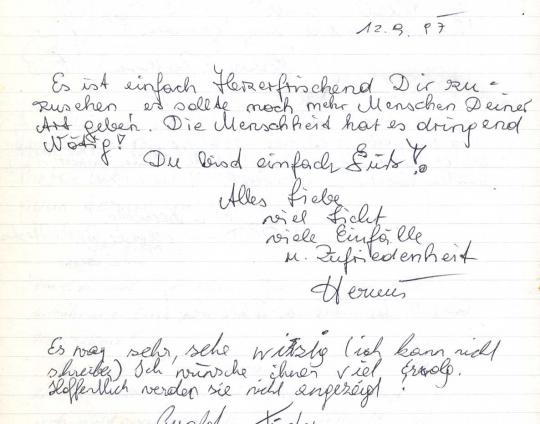 12.9.97
Es ist einfach Herzerfrischend Dir zu-
zusehen es sollte noch mehr Menschen Deiner
Art geben. Die Menschheit hat es dringend
Nötig!
Du bisd einfach Gut!
Alles Liebe
viel Licht
viele Einfälle
u. Zufriedenheit
Es war sehr, sehr witzig (ich kann nicht
schreiben) Ich wünsche ihnen viel
Hoffentlich werden sie nicht angezeigt!